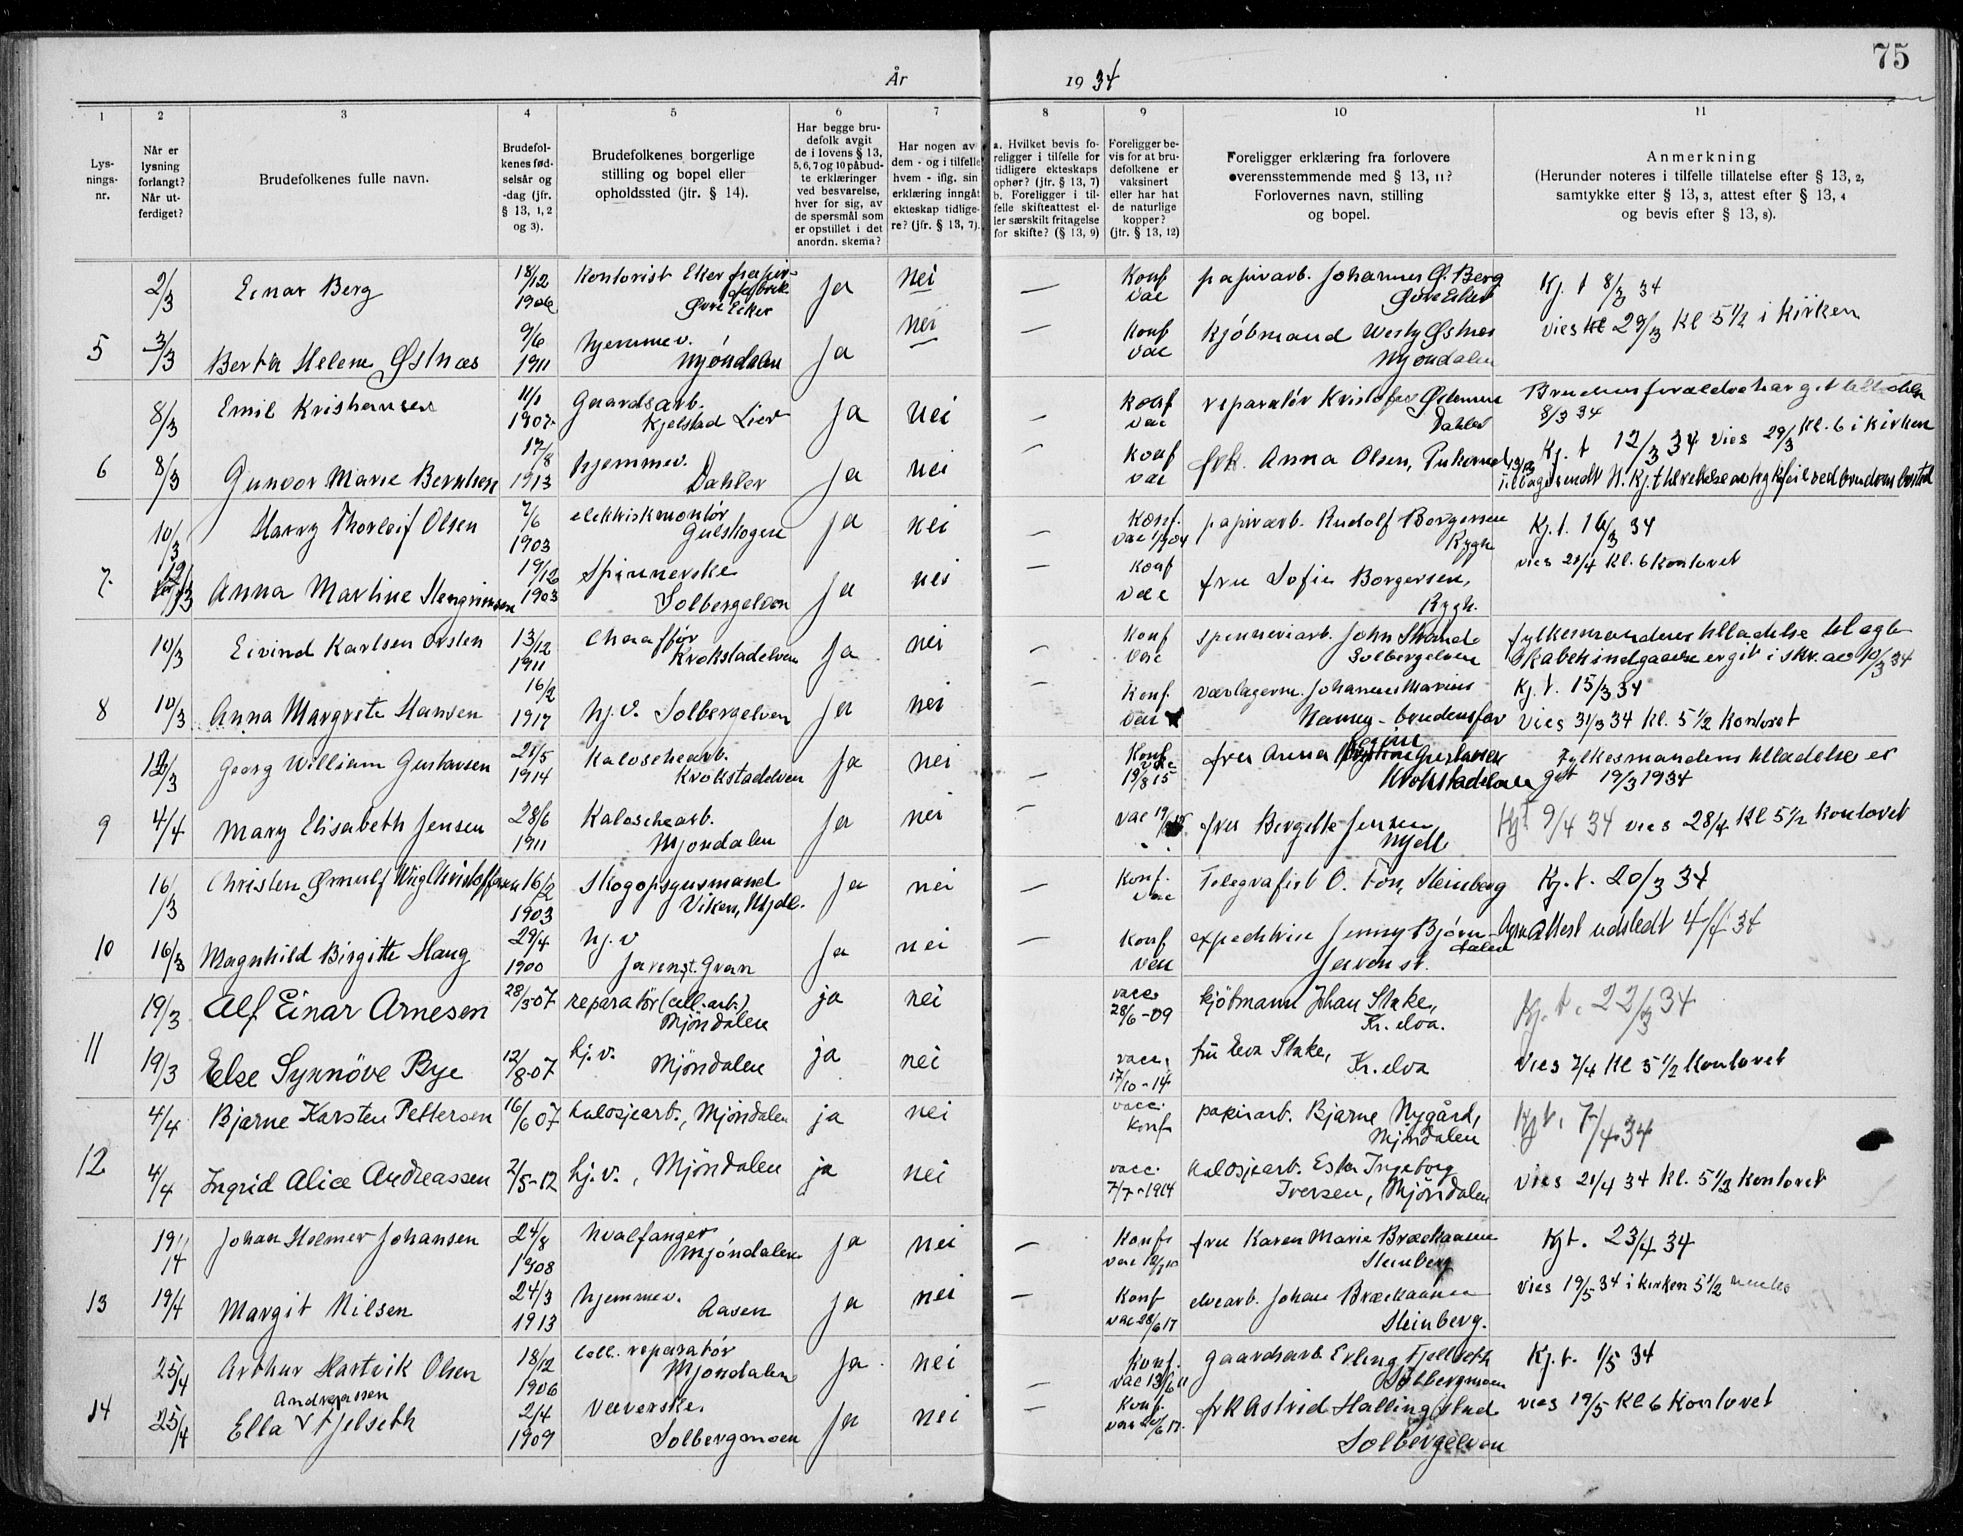 75
År 1934
1 2 3 4 5 6 7 8 9 10 11
Lys-
nings-
nr.
Når er
lysning
forlangt?
Når ut-
ferdiget?
Brudefolkenes fulle navn.
Brudefol-
kenes fød-
selsår og
-dag (jfr.
§ 13, 1, 2
og 3).
Brudefolkenes borgerlige
stilling og bopel eller
opholdssted (jfr. § 14).
Har begge bru-
defolk avgit
de i lovens § 13,
5, 6, 7 og 10 påbud-
te erklæringer
ved besvarelse,
hver for sig, av
de spørsmål som
er opstillet i det
anordn. skema?
Har nogen av
dem - og i tilfelle
hvem - iflg. sin
erklæring inngåt
ekteskap tidlige-
re? (jfr. § 13, 7).
a. Hvilket bevis fo-
religger i tilfelle for
tidligere ekteskaps
ophør? (jfr. § 13, 7)
b. Foreligger i til-
felle skifteattest el-
ler særskilt fritagelse
for skifte? (§ 13, 9)
Foreligger be-
vis for at bru-
defolkene er
vaksinert
eller har hat
de naturlige
kopper?
(jfr. § 13, 12)
Foreligger erklæring fra forlovere
overensstemmende med § 13, 11?
Forlovernes navn, stilling
og bopel.
Anmerkning
(Herunder noteres i tilfelle tillatelse efter § 13, 2,
samtykke efter § 13, 3, attest efter § 13, 4
og bevis efter § 13, 8).
2/3 Einar Berg 18/12 1906 Kontorist Eker papir-
fabrik
Øvre Eker ja nei — Konf vac papirarb. Johannes G. Berg
Øvre Eker Kj. t 8/3 34
5 3/3 Berta Helene Østnæs 9/6 1911 hjemmev.
Mjøndalen ja nei — Konf vac Kjøbmand Westy Østnæs
Mjøndalen vies 29/3 Kl 5 1/2 i Kirken
8/3 Emil Kristiansen 11/1 1907 Gaardsarb.
Kjelstad Lier ja nei — Konf vac reparatør Kristofer
Dahler Brudens forældre har git tilladelse
8/3 34
6 8/3 Gunvor Marie Berntsen 17/8 1913 hjemmev.
Dahler ja nei — Konf vac frk. Anna Olsen, Kj. t 12/3 34 vies 29/3 kl. 6 i kirken
10/3 Harry Thorleif Olsen 7/6 1903 elektriskmontør
Gulskogen ja nei — Konf. vac papirarb. Rudolf Borgersen
Rygh Kj. t. 16/3 34
7 Anna Martine Hengrinsen 19/12 1903 Spinnerske
Solbergelven ja nei — Konf vac fru Sofie Borgersen,
Rygh. vies 21/4 Kl. 6 Kontoret
10/3 Eivind Karlsen Orsten 13/12 1911 Chauffør
Krokstadelven ja nei — Konf vac spinneriarb. John Strande
Solbergelven fylkesmandens tilladelse til egte-
skabets indgaaelse er git i skr. av 10/3 34
8 10/3 Anna Margrete Hansen 16/2 1917 hj. v. Solbergelven ja nei — Konf. vac Johannes Marius
Hansen - brudens far Kj. t. 15/3 34
Vies 31/3 34 kl. 5 1/2 Kontoret
Georg William Gustavsen 21/5 1914 Kaloschearb.
Krokstadelven ja nei — Konf vac 19/8 15 fru Anna Gustavsen
Krokstadelven Fylkesmandens tilladelse er
git 19/3 1934
9 4/4 Mary Elisabeth Jensen 28/6 1911 Kaloschearb.
Mjøndalen ja nei — vac fru Bergitte Jensen
Mjdl. Kjt 9/4 34 vies 28/4 Kl 5 1/2 Kontoret
16/3 Christen Ørnulf Wiig Christoffersen 16/2 1903 Skogopsynsmand
Viken, Mjdl. ja nei — Konf. vac Telegrafist O. Fon, Steinberg Kj. t. 20/3 34
10 16/3 Magnhild Birgitte Haug 29/4 1900 hj. v
Jaren st. Gran ja nei — Konf vac expeditrise Jenny Bjørn-
dalen
Jaren st. Attest udstedt 4/4 34
19/3 Alf Einar Arnesen 28/3 07 reparatør (cell. arb.),
Mjöndalen ja nei vacc. 28/6-09 kjøbmann Johan Stake,
Kr. elva. Kj. t. 22/3 34
11 19/3 Else Synnöve Bye 12/8-07 hj. v. Mjöndalen ja nei vacc. 17/10-14 fru Eva Stake,
Kr. elva Vies 7/4 Kl 5 1/2 Kontoret
4/4 Bjarne Karsten Pettersen 16/6 07 kalosjearb., Mjöndalen ja nei vacc. Konf papirarb. Bjarne Nygård,
Mjöndalen Kjt. 7/4 34
12 4/4 Ingrid Alice Andreassen 2/5-12 hj. v., Mjöndalen ja nei vacc. 7/7-1914 kalosjearb. Ester Ingeborg
Iversen, Mjöndalen Vies 21/4 34 Kl. 5 1/2 Kontoret
19/4 Johan Helmer Johansen 24/8 1908 hvalfanger
Mjøndalen ja nei — Konf. vac fru Karen Marie Brækaasen
Steinberg Kjt. 23/4 34
13 19/4 Margit Nilsen 24/3 1913 hjemmev.
Aasen ja nei — Konf vac 28/6 17 elvearb. Johan Brækaasen
Steinberg. Vies 19/5 34 i kirken 5 1/2
25/4 Arthur Hartvik Olsen 18/12 1906 Cell. reparatør
Mjøndalen ja. nei — Konf. vac 13/6 11 gaardsarb Erling Fjellseth
Solbergmoen Kj. t. 1/5 34
14 25/4 Ella Andreassen Fjelseth 2/4 1909 Væverske.
Solbergmoen ja nei — Konf. vac 20/6 17. frk Astrid Hallingstad
Solbergelven vies 19/5 Kl 6 Kontoret